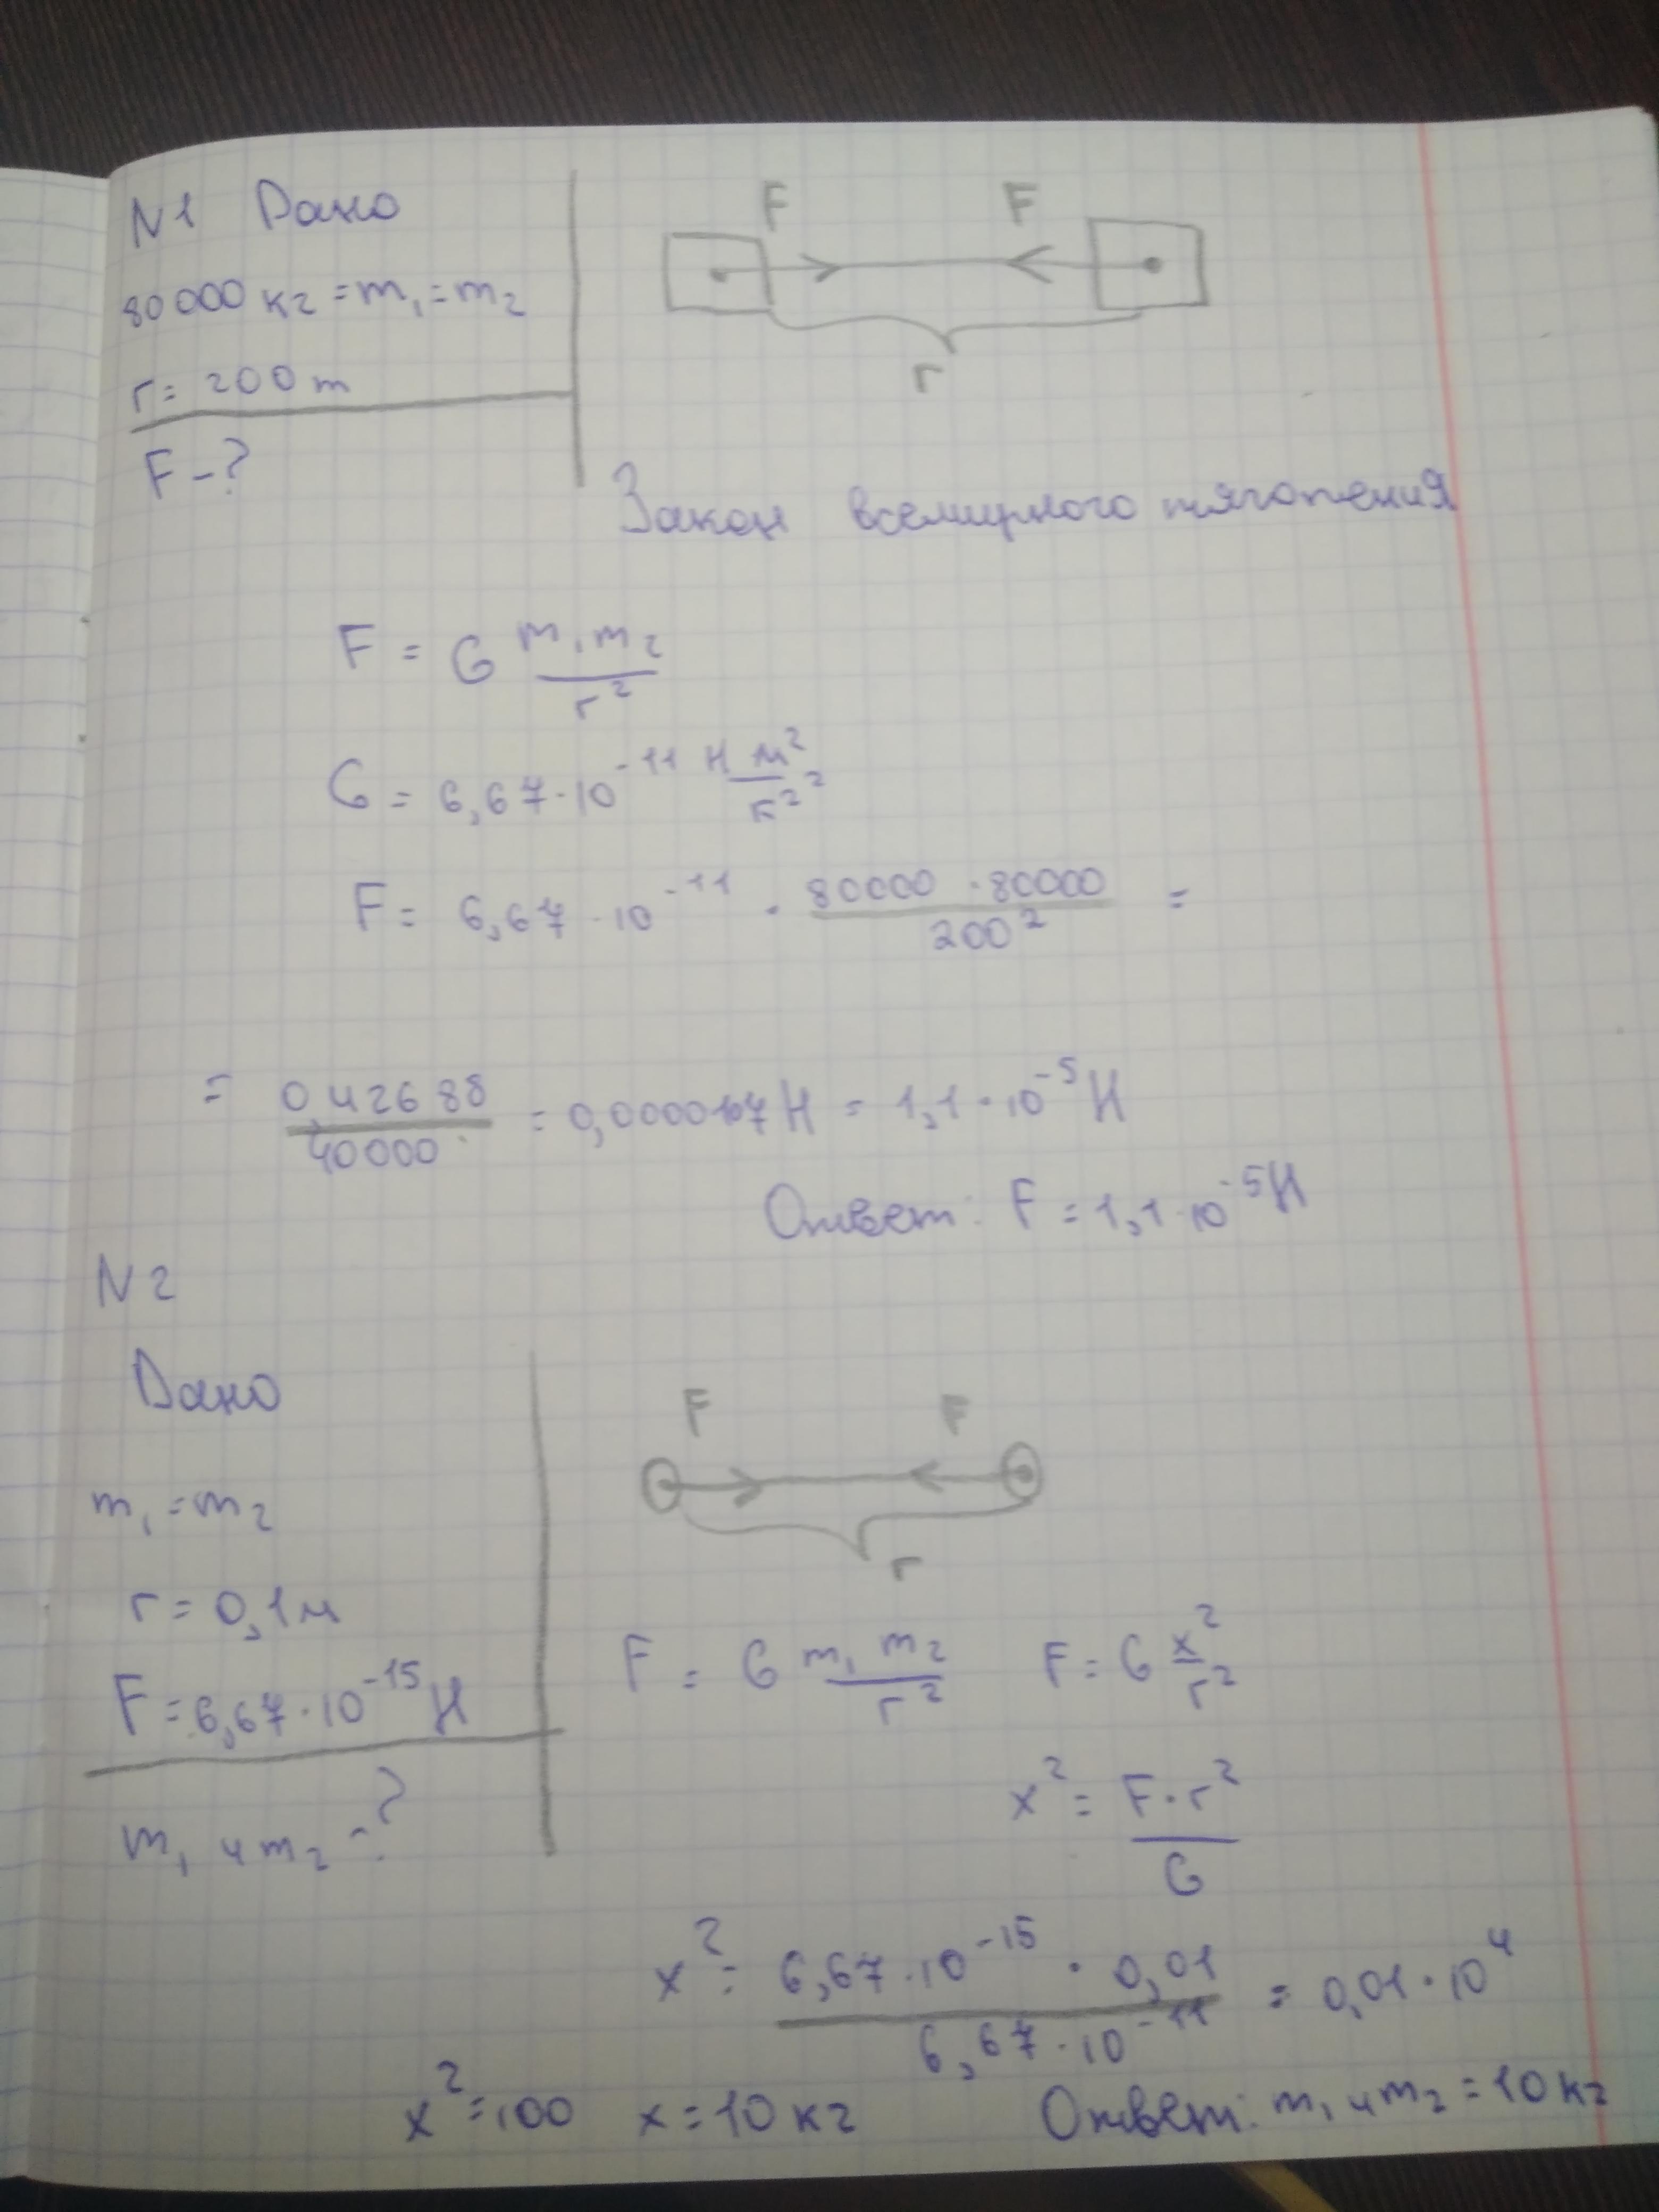 N1 Дано
80000 кг = m₁ = m₂
r = 200 m
F - ?
F F
r
Закон всемирного тяготения
F = G m₁ m₂ / r²
G = 6,67 · 10⁻¹¹ Н м² / к²²
F = 6,67 · 10⁻¹¹ · 80000 · 80000 / 200² =
= 0,42688 / 40000 = 0,0000107 Н = 1,1 · 10⁻⁵ Н
Ответ: F = 1,1 · 10⁻⁵ Н
N2
Дано
m₁ = m₂
r = 0,1 м
F = 6,67 · 10⁻¹⁵ Н
m₁ и m₂ - ?
F F
r
F = G m₁ m₂ / r² F = G x² / r²
x² = F · r² / G
x² = 6,67 · 10⁻¹⁵ · 0,01 / 6,67 · 10⁻¹¹ = 0,01 · 10⁴
x² = 100 x = 10 кг Ответ: m₁ и m₂ = 10 кг